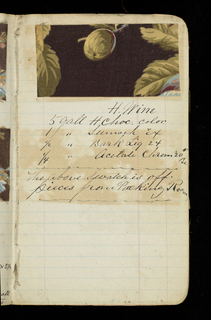 H. Wine
5 gall H. Choc. color
1 " Sumach 24
1/2 " Bark Liq 24
1/4 " Acetate Chrome 20
The above swatch is off
pieces from Packing Room